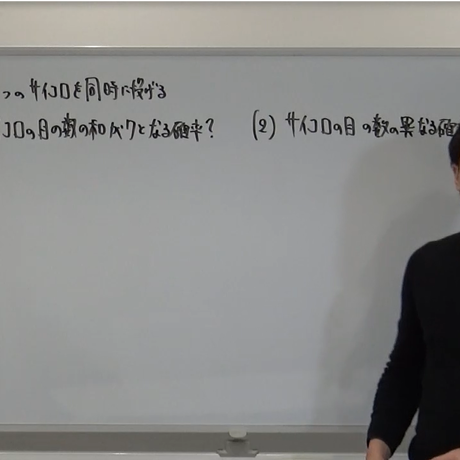 つのサイコロを同時に投げる
コロの目の数の和が7となる確率?
(2) サイコロの目の数の異なる確